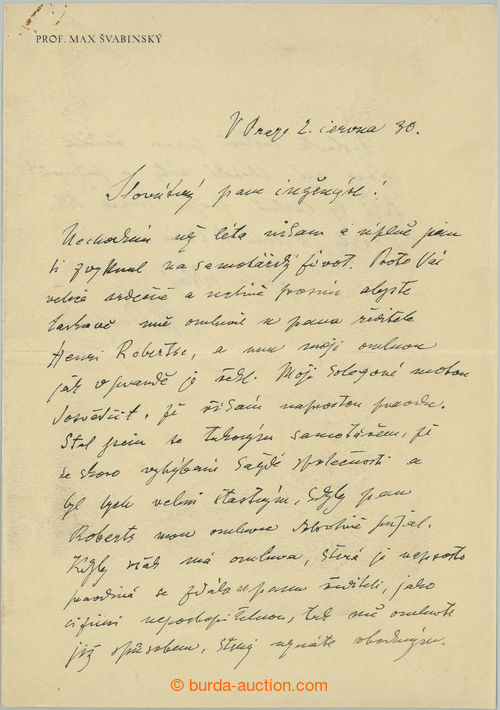 PROF. MAX ŠVABINSKÝ
V Praze 2. června 30.
Slovutný pane inženýre!
Nechodím již léta nikam a úplně jsem
si zvyknul na samotářský život. Proto Vás
velice srdečně a uctivě prosím abyste
laskavě mně omluvil u pana ředitele
Henri Robertse, a mou omluvou
jak v pravdě je řekl. Moji kolegové mohou
dosvědčit, že říkám naprostou pravdu.
Stal jsem se takovým samotářem, že
se skoro vyhýbám každé společnosti a
byl bych velmi šťastným, kdyby pan
Roberts mou omluvu blahovolně přijal.
Kdyby však má omluva, která je naprosto
pravdivá se zdála panu řediteli, jako
nepochopitelnou, tak mě omluvte
již způsobem, který uznáte vhodným.
© burda-auction.com